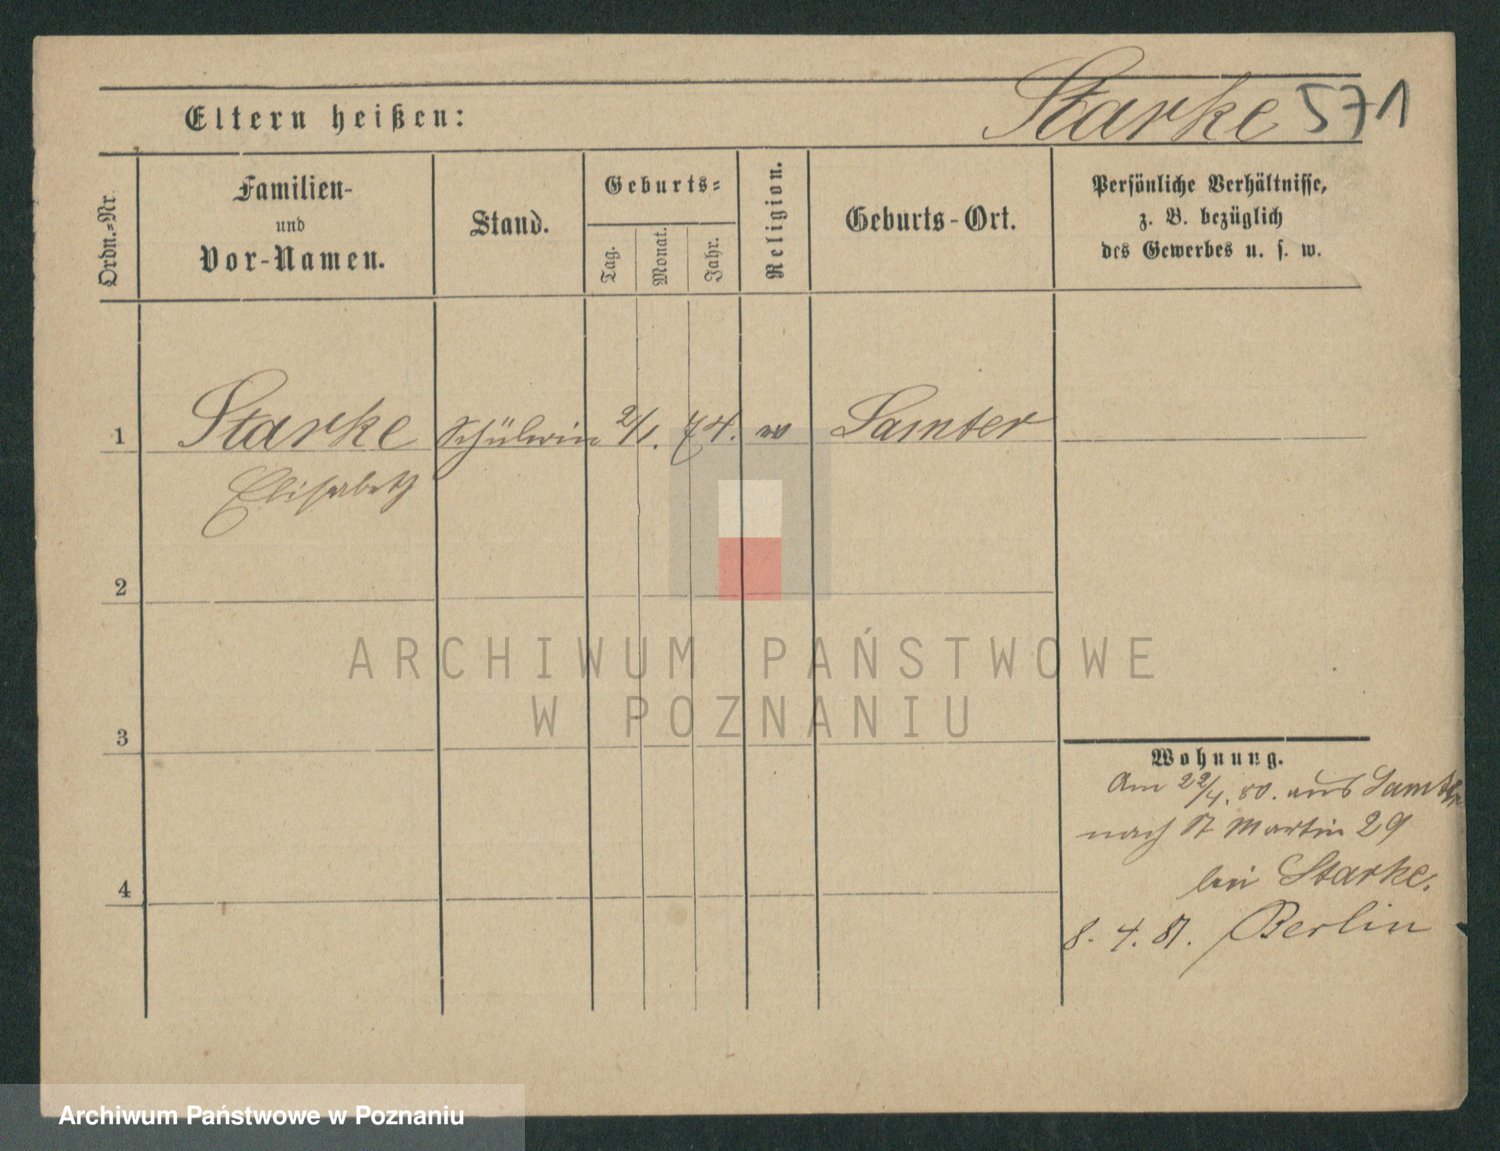 Starke 571
Eltern heißen:
Ordn.=Nr.
Familien-
und
Vor-Namen.
Stand.
Geburts=
Tag.
Monat.
Jahr.
Religion.
Geburts-Ort.
Persönliche Verhältnisse,
z. B. bezüglich
des Gewerbes u. s. w.
1 Starke Schülerin 2/1. 74. Samter
Elisabeth
2
ARCHIWUM PAŃSTWOWE
W POZNANIU
3
Wohnung.
Am 22/4. 80. aus Samter
nach St Martin 29
bei Starke.
4
8. 4. 81. Berlin
Archiwum Państwowe w Poznaniu